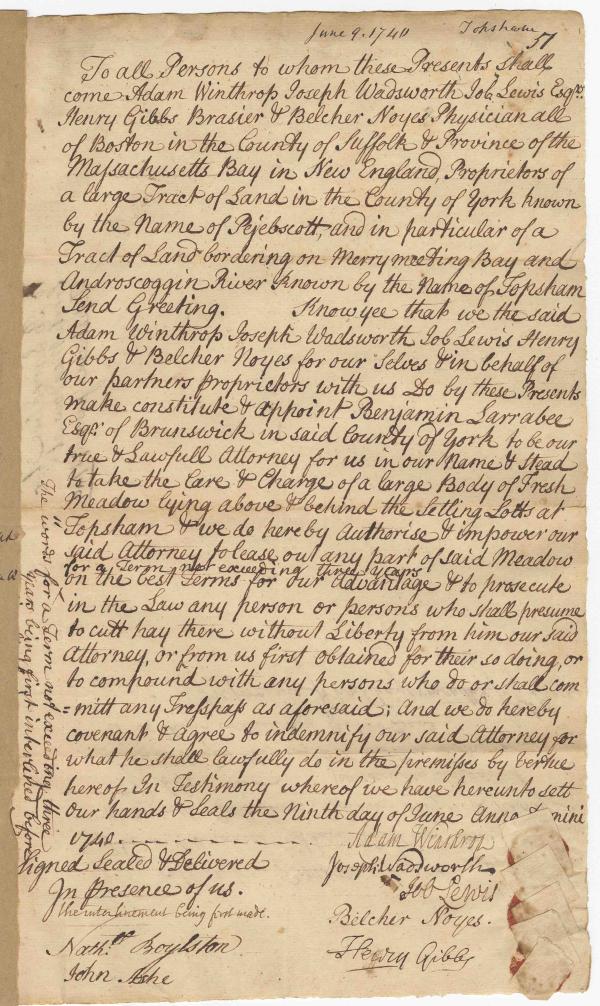 June 9. 1740 Topsham
51
To all Persons to whom these Presents shall
come Adam Winthrop Joseph Wadsworth Job Lewis Esqrs.
Henry Gibbs Brasier & Belcher Noyes Physician all
of Boston in the County of Suffolk & Province of the
Massachusetts Bay in New England, Proprietors of
a large Tract of Land in the County of York known
by the Name of Pejebscott, and in particular of a
Tract of Land bordering on Merrymeeting Bay and
Androscoggin River Known by the Name of Topsham
Send Greeting. Know yee that we the said
Adam Winthrop Joseph Wadsworth Job Lewis Henry
Gibbs & Belcher Noyes for our Selves & in behalf of
our partners proprietors with us Do by these Presents
make constitute & appoint Benjamin Larrabee
Esqr. of Brunswick in said County of York to be our
true & Lawfull Attorney for us in our Name & Stead
to take the Care & Charge of a large Body of Fresh
Meadow lying above & behind the Setling Lotts at
Topsham & we do hereby Authorise & impower our
said Attorney to lease out any part of said Meadow
for a Term not exceeding three years
on the best Terms for our Advantage & to prosecute
in the Law any person or persons who shall presume
to cutt hay there without Liberty from him our said
Attorney, or from us first obtained for their so doing, or
to compound with any persons who do or shall com
=mitt any Tresspass as aforesaid; And we do hereby
covenant & agree to indemnify our said Attorney for
what he shall lawfully do in the premisses by Vertue
hereof In Testimony whereof we have hereunto sett
Our hands & Seals the Ninth day of June Anno mini
1740.
Signed Sealed & Delivered
In presence of us.
the interlinement being first made.
Nathll. Boylston
John Ashe
Adam Winthrop
Joseph Wadsworth
Job Lewis
Belcher Noyes.
Henry Gibbs
The words "for a Term not exceeding three
years being first interlined before